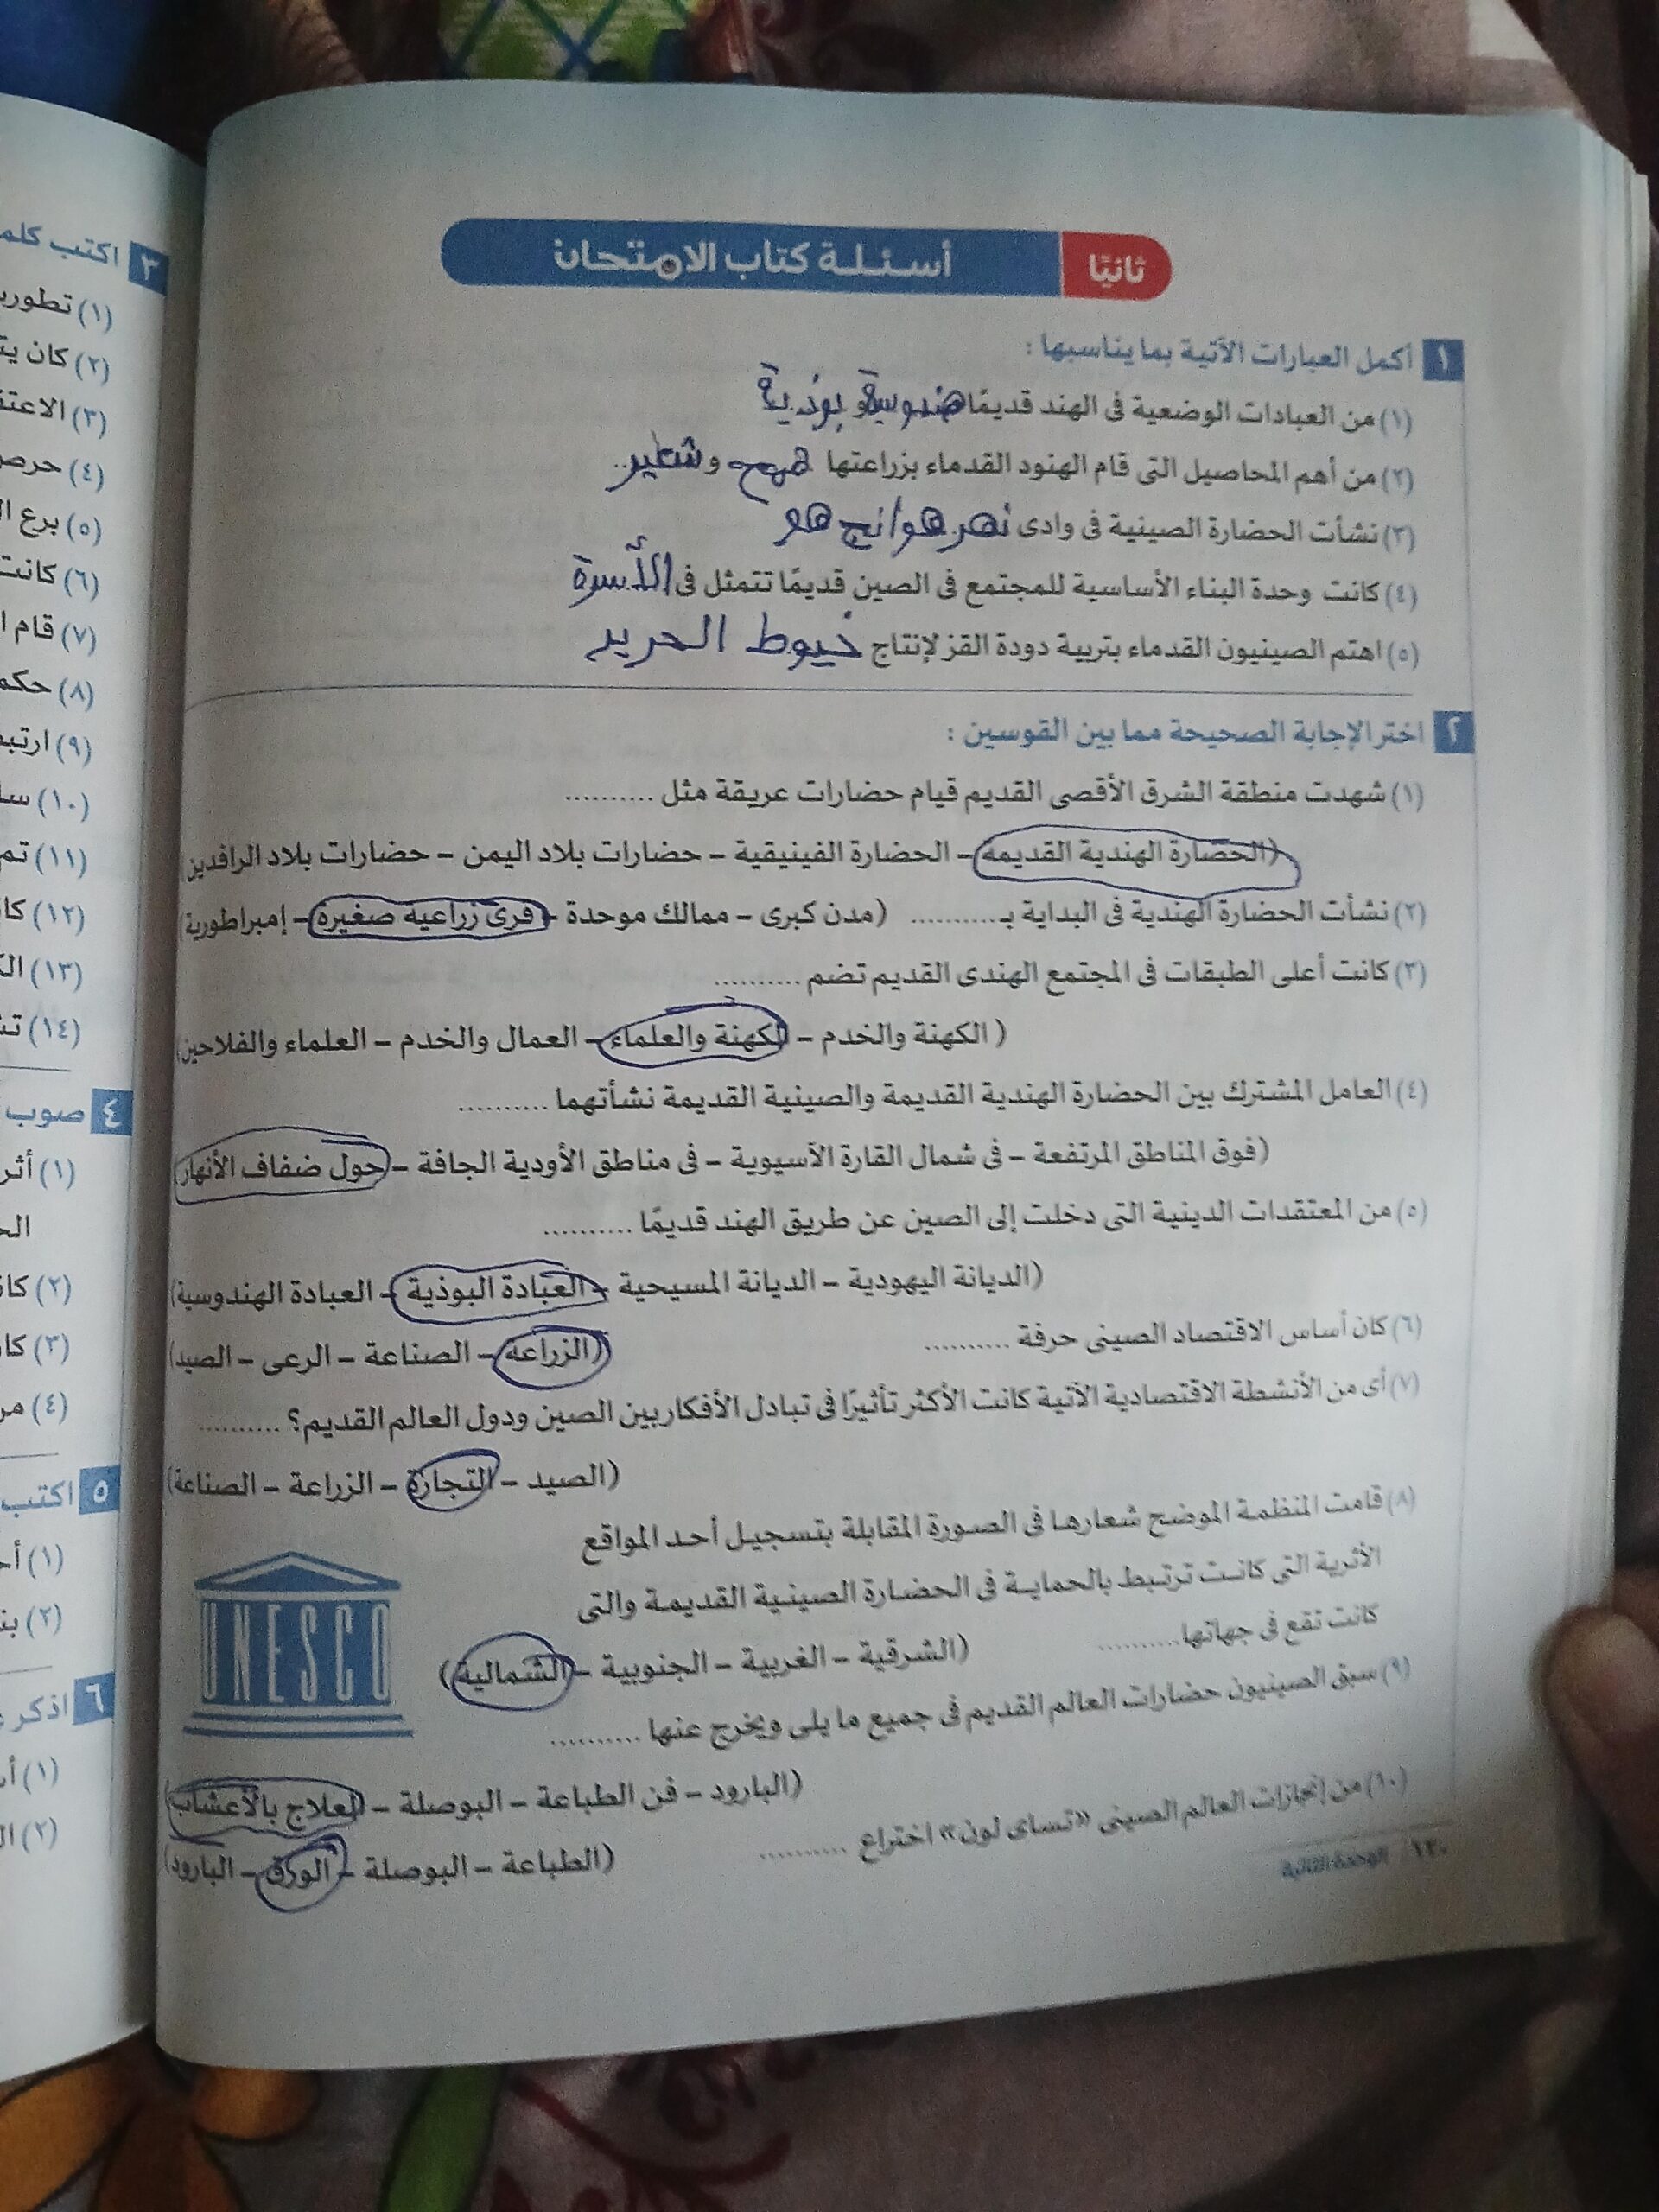 ثانيًا
أسئلة كتاب الامتحان
١ أكمل العبارات الآتية بما يناسبها :
(١) من العبادات الوضعية فى الهند قديمًا هندوسية و بوذية
(٢) من أهم المحاصيل التى قام الهنود القدماء بزراعتها قمح و شعير ..
(٣) نشأت الحضارة الصينية فى وادى نهر هوانج هو
(٤) كانت وحدة البناء الأساسية للمجتمع فى الصين قديمًا تتمثل فى الأسرة
(٥) اهتم الصينيون القدماء بتربية دودة القز لإنتاج خيوط الحرير
٢ اختر الإجابة الصحيحة مما بين القوسين :
(١) شهدت منطقة الشرق الأقصى القديم قيام حضارات عريقة مثل ..........
(الحضارة الهندية القديمة – الحضارة الفينيقية – حضارات بلاد اليمن – حضارات بلاد الرافدين)
(٢) نشأت الحضارة الهندية فى البداية بـ .......... (مدن كبرى – ممالك موحدة – قرى زراعية صغيرة – إمبراطورية)
(٣) كانت أعلى الطبقات فى المجتمع الهندى القديم تضم ..........
( الكهنة والخدم – الكهنة والعلماء – العمال والخدم – العلماء والفلاحين)
(٤) العامل المشترك بين الحضارة الهندية القديمة والصينية القديمة نشأتهما ..........
(فوق المناطق المرتفعة – فى شمال القارة الآسيوية – فى مناطق الأودية الجافة – حول ضفاف الأنهار)
(٥) من المعتقدات الدينية التى دخلت إلى الصين عن طريق الهند قديمًا ..........
(الديانة اليهودية – الديانة المسيحية – العبادة البوذية – العبادة الهندوسية)
(٦) كان أساس الاقتصاد الصينى حرفة .......... (الزراعة – الصناعة – الرعى – الصيد)
(٧) أى من الأنشطة الاقتصادية الآتية كانت الأكثر تأثيرًا فى تبادل الأفكار بين الصين ودول العالم القديم؟ ..........
(الصيد – التجارة – الزراعة – الصناعة)
(٨) قامت المنظمة الموضح شعارها فى الصورة المقابلة بتسجيل أحد المواقع
الأثرية التى كانت ترتبط بالحماية فى الحضارة الصينية القديمة والتى
كانت تقع فى جهاتها .......... (الشرقية – الغربية – الجنوبية – الشمالية )
UNESCO
(٩) سبق الصينيون حضارات العالم القديم فى جميع ما يلى ويخرج عنها ..........
(البارود – فن الطباعة – البوصلة – العلاج بالأعشاب)
(١٠) من إنجازات العالم الصينى «تساى لون» اختراع .......... (الطباعة – البوصلة – الورق – البارود)
١٢٠ الوحدة الثانية
٣ اكتب
(١)
(٢) كان
(٣)
(٤)
(٥) برع
(٦) كانت
(٧) قام
(٨)
(٩)
(١٠)
(١١)
(١٢)
(١٣)
(١٤)
٤ صوب
(١)
(٢)
(٣)
(٤)
٥ اكتب
(١)
(٢)
٦ اذكر
(١)
(٢)